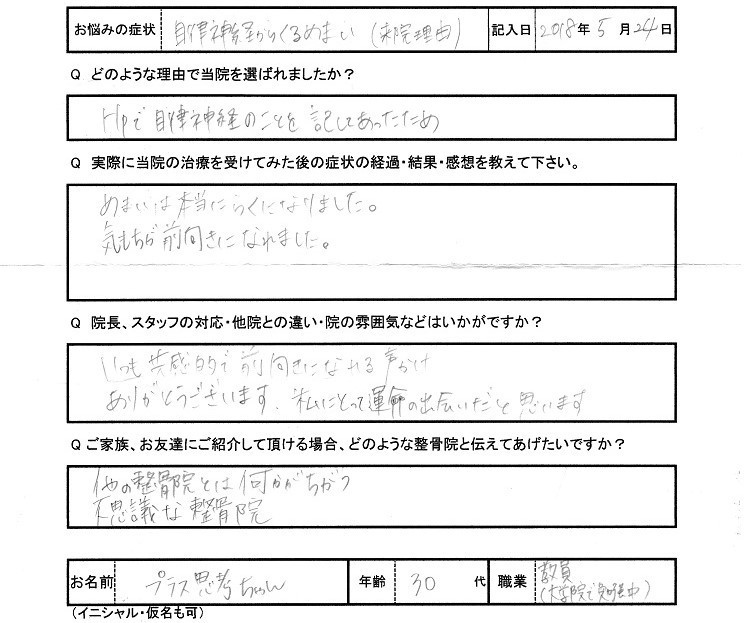 お悩みの症状 自律神経からくるめまい（来院理由） 記入日 2018年 5月 24日
Q どのような理由で当院を選ばれましたか？
Hpで自律神経のことを記してあったため
Q 実際に当院の治療を受けてみた後の症状の経過・結果・感想を教えて下さい。
めまいは本当にらくになりました。
気もちも前向きになれました。
Q 院長、スタッフの対応・他院との違い・院の雰囲気などはいかがですか？
いつも共感的で前向きになれる声かけ
ありがとうございます、私にとって運命の出会いだと思います
Q ご家族、お友達にご紹介して頂ける場合、どのような整骨院と伝えてあげたいですか？
他の整骨院とは何かがちがう
不思議な整骨院
お名前 プラス思考ちゃん 年齢 30 代 職業 教員
（大学院で勉強中）
（イニシャル・仮名も可）